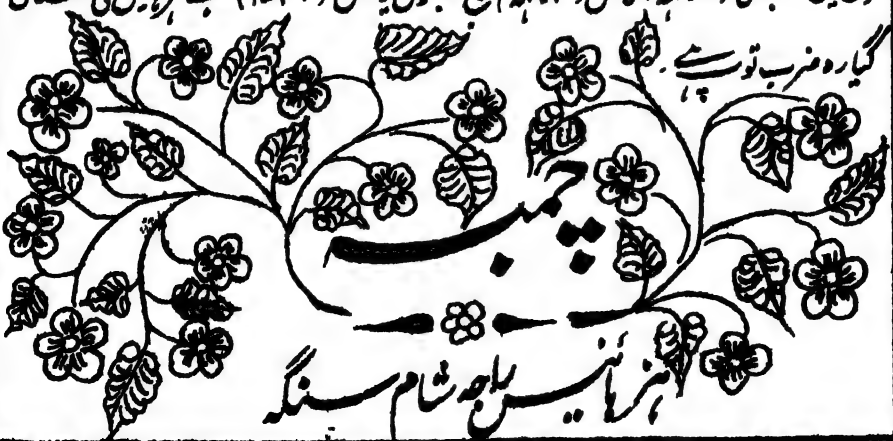 گیارہ ضرب توپ ہے۔
چمبہ
ہزہائینس راجہ شام سنگہ